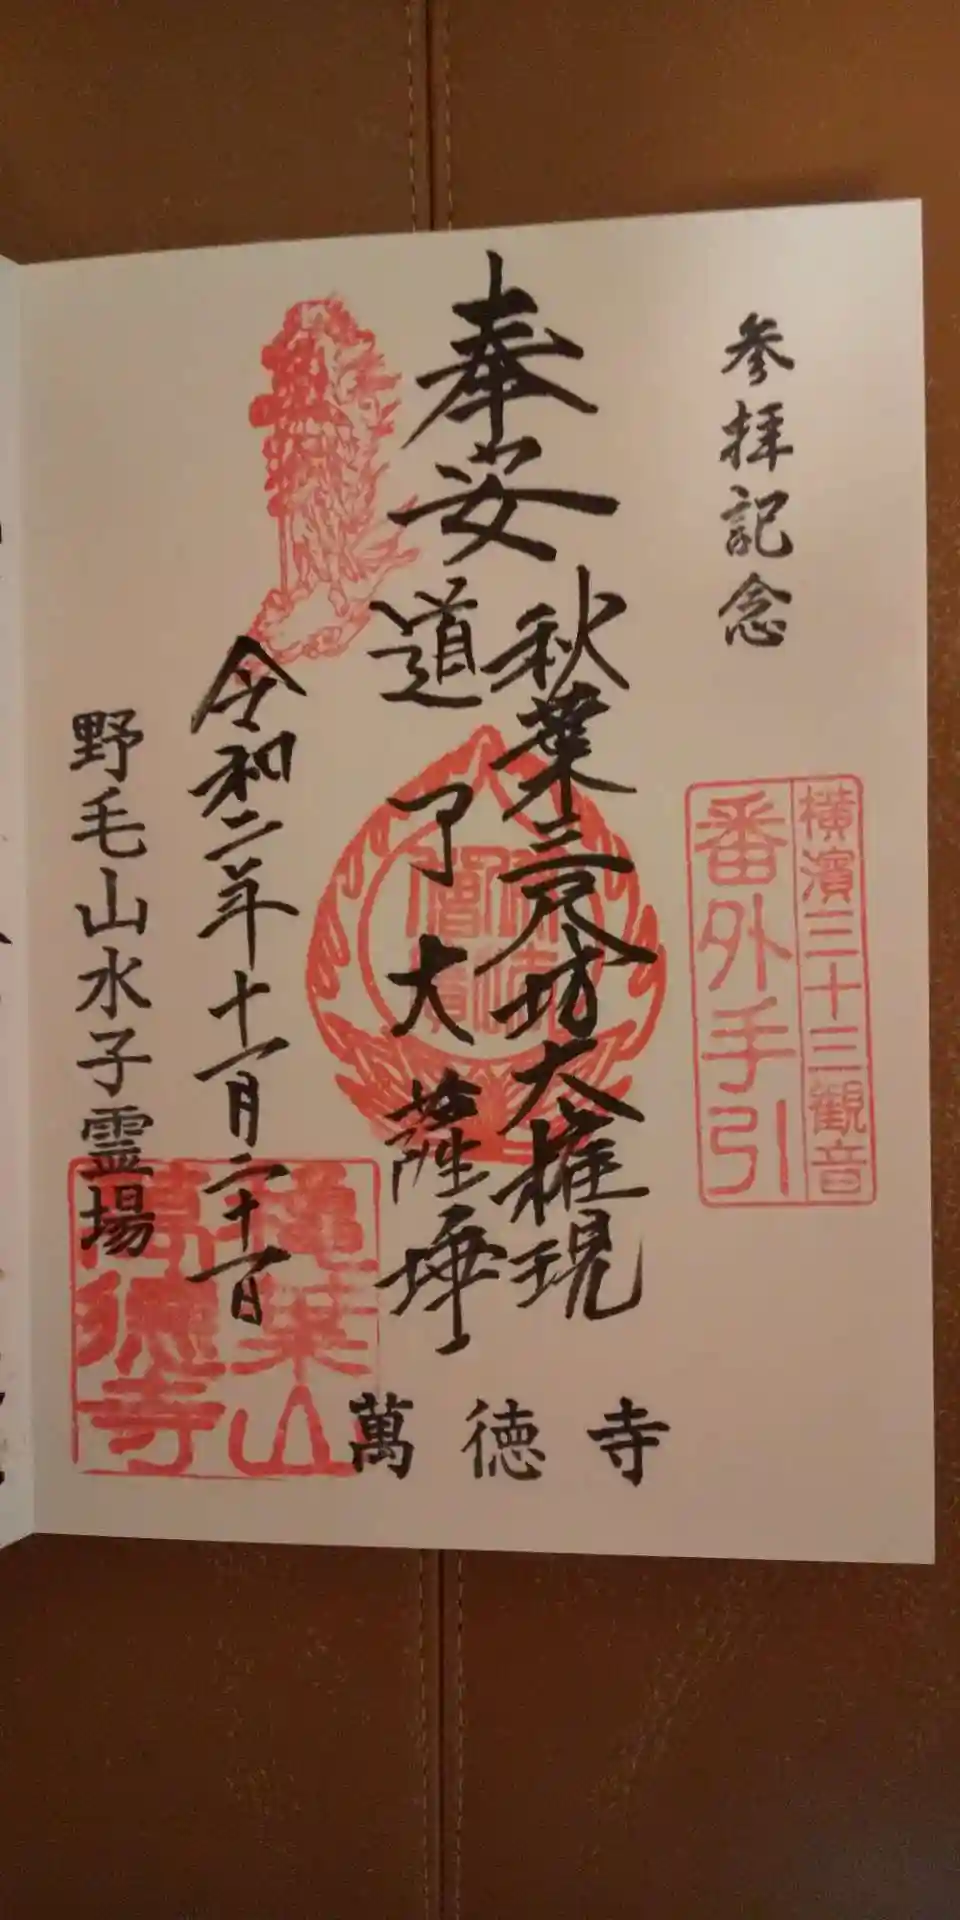 参拝記念
横濱三十三観音
番外手引
奉安
秋葉三尺坊大権現
道了大薩埵
萬徳寺
令和二年十一月二十一日
野毛山水子霊場
萬徳寺